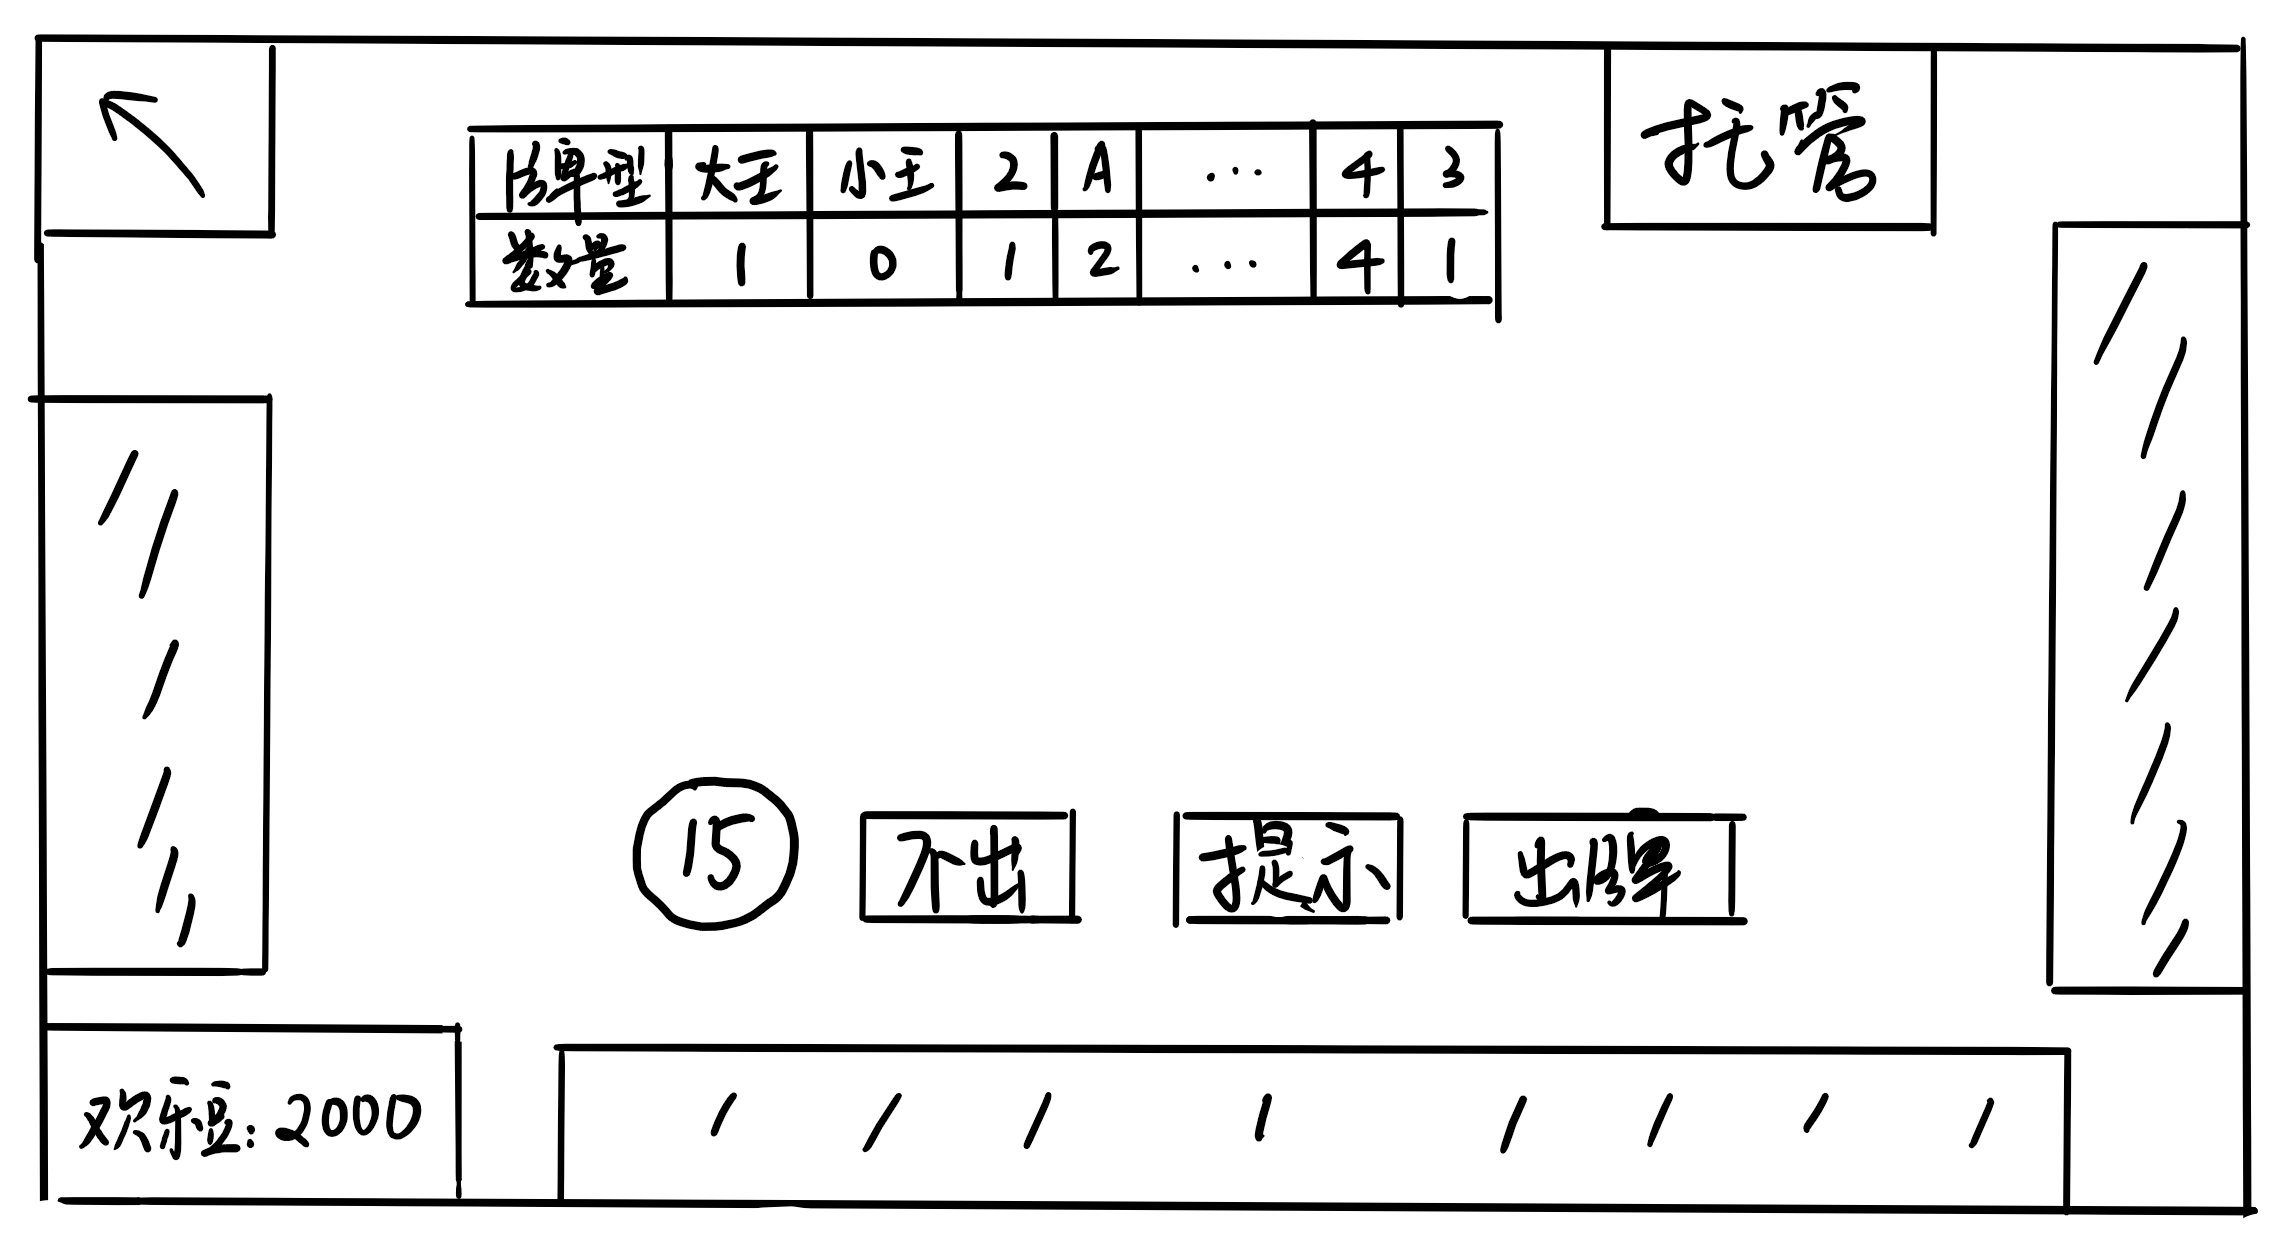 托管
牌型 大王 小王 2 A ... 4 3
数量 1 0 1 2 ... 4 1
15 不出 提示 出牌
欢乐豆: 2000